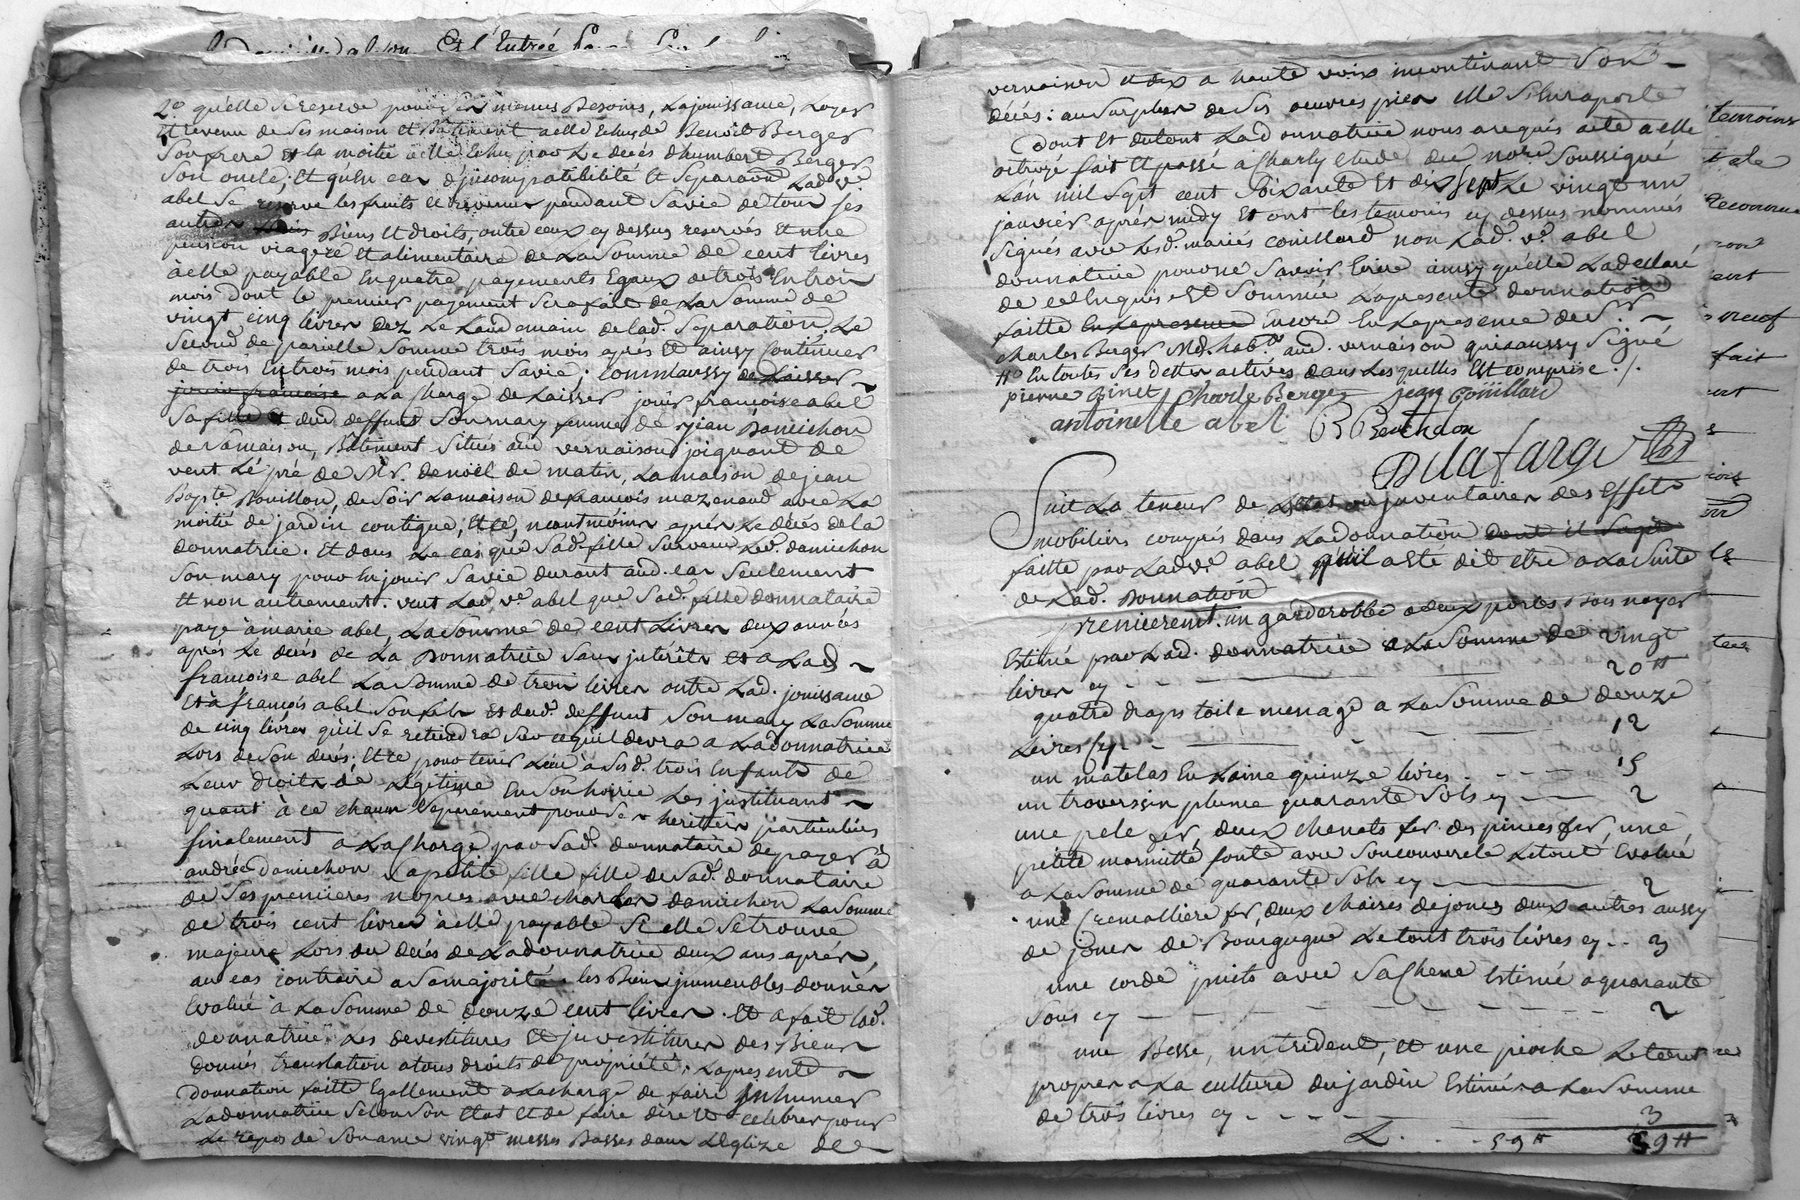 Est l'Entrée
2.° qu'elle se reserve pour ses menus Besoins, La jouissance, Loyer
et revenu de ses maison et Batiment a elle Echus de Benoît Berger
son frere et la moitié a elle Echu par Le decés d'humbert Berger
son oncle; et qu'en cas d'jncompatibilité et separaon Lad. v.e
abel se reserve les fruits et revenus pendant sa vie de tous ses
autres Biens et droits, outre ceux cy dessus reservés et une
pension viagere et alimentaire de La somme de cent livres
à elle payable En quatre payements Egaux de trois En trois
mois dont le premier payement sera fait de La somme de
vingt cinq livres dez Le Landemain de lad. separation, Le
second de pareille somme trois mois aprés et ainsy Continuer
de trois En trois mois pendant sa vie; comm'aussy de Laisser
jouir françoise a La Charge de Laisser jouir françoise abel
sa fille et dud. deffunt son mary femme de jean Damichon
de sa maison, Batiment situés aud. vernaison joignant de
vent Le pré de Mr. denoël de matin, La maison de jean
Bapte. Bouillon, de soir La maison de françois mazenaud avec La
moitié de jardin contigue, et ce, neantmoins aprés Le decés de la
donnatrice. Et dans Le cas que sad. fille survecu Led. damichon
son mary pour En jouir sa vie durant aud. cas seulement
et non autrement. veut Lad. v.e abel que sad. fille donnataire
paye à marie abel, La somme de cent Livres deux années
aprés Le decés de La Donnatrice sans jnterêts et a Lad.
françoise abel La somme de trois livres outre Lad. jouissance
Et à françois abel son fils et dud. deffunt son mary La somme
de cinq livres qu'il se retiendra sur ce qu'il devra a La donnatrice
Lors de son decés; Et ce pour tenir Lieu à sesd. trois Enfants de
Leur droits de Legitime En son hoirie Les jnstituant
quant à ce chacun separement pour ses heritiers particuliers
finalement a La Charge par sad. donnataire de payer à
andrée damichon sa petite fille fille de sad. donnataire
de ses premieres nopces avec charles damichon La somme
de trois cent livres à elle payable si elle se trouve
majeure Lors du decés de La donnatrice deux ans aprés,
au cas contraire a sa majorité. les Biens jmmeubles donnés
Evalué à La somme de douze cent livres. Et a fait lad.
donnatrice Les devestitures Et jnvestitures des Biens
donnés, translation a tous droits de propriété; La presente
Donnation faitte Egallement a La charge de faire jnhumer
La donnatrice selon son Etat et de faire dire et celebrer pour
Le repos de son ame vingt messes Basses dans L'Eglize de
vernaison et dix a haute voix incontinant son
décés: au surplus de ses oeuvres pies elle s'En raporte
Dont et du tout Lad. donnatrice nous a requis acte a elle
octroyé fait et passé a Charly etude du nore. soussigné
L'an mil sept cent soixante et dix sept Le vingt un
janvier aprés midy Et ont les temoins cy dessus nommés
signés avec Lesd. mariés couillard non Lad. v.e abel
donnatrice pour ne savoir Ecrire ainsy qu'elle La declaré
de ce Enquise Et sommée La presente donnation
faitte En La presence Encore En La presence de S.r
Charles Berger Md. hab.t aud. vernaison qui a aussy signé
En toutes ses dettes actives dans Lesquelles Est comprise ./.
pierre Binet Charle Berger jean Couillard
antoinette abel B Berthelon
Delafarge
Suit La teneur de L'Etat ou jnventaires des Effets
mobiliers compris dans La donnation dont il s'agit
faitte par Lad. v.e abel qu'il a Eté dit etre a La suite
de Lad. Donnation
Premierement. un garderobbe a deux portes Bois noyer
Estimé par Lad. donnatrice a La somme de vingt
livres cy 20 ₶
quatre draps toile menage a La somme de douze
Livres cy 12
un matelas En Laine quinze livres 15
un traversin plume quarante sols cy 2
une pele fer, deux chenets fer des pinces fer, une
petite marmitte fonte avec son couvercle Le tout Evalué
a La somme de quarante sols cy 2
une Cremalliere fer, deux chaises de joncs deux autres aussy
de joncs de Bourgugne Le tout trois livres cy 3
une corde puits avec sa Chene Estimé a quarante
sous cy 2
une Besse, un trident, et une pioche Le tout
propres a La culture du jardin Estimé a La somme
de trois livres cy 3
L. 59 ₶ 59 ₶
temoins
neuf
fait